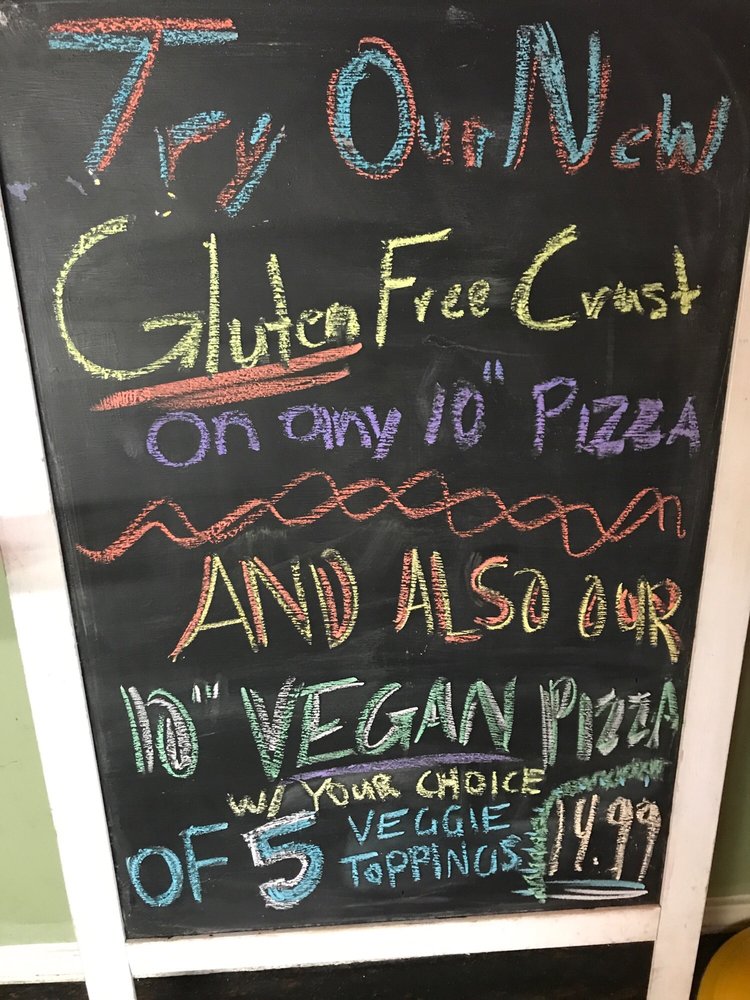 Try Our New
Gluten Free Crust
on any 10" PIZZA
AND ALSO OUR
10" VEGAN PIZZA
W/ YOUR CHOICE
OF 5 VEGGIE TOPPINGS 14.99